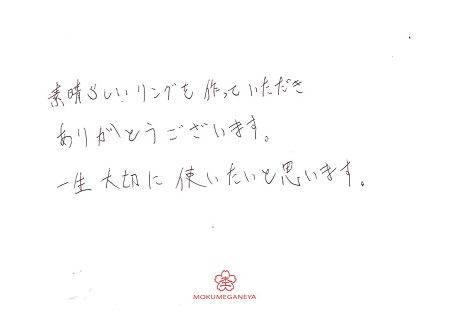 素晴らしいリングを作っていただき
ありがとうございます。
一生大切に使いたいと思います。
MOKUMEGANEYA